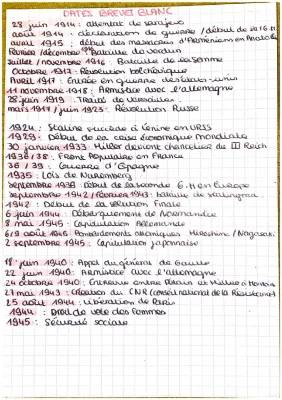 DATES BREVET BLANC
28 juin 1914 : attentat de Sarajevo
août 1914 : déclaration de guerre / début de la 1G.M
avril 1915 : début des massacres d'Arméniens en Anatolie
Février / décembre 1916 Bataille de Verdun
Juillet / novembre 1916 : Bataille de la Somme
Octobre 1917 : Révolution bolchévique
Avril 1917 : Entrée en guerre des États-unis
11 novembre 1918 : Armistice avec l'allemagne
28 juin 1919 : Traité de Versailles
mars 1917 / juin 1923 : Révolution Russe
1924 : Staline succède à Lénine en URSS
1929 : Début de la crise économique mondiale
30 janvier 1933 Hitler devient chancelier du III Reich
1936/38 : Front Populaire en France
36/39 : Guerre d'Espagne
1935 : Lois de Nuremberg
Septembre 1939 : Début de la seconde G.M en Europe
Septembre 1942 / Février 1943 : Bataille de Stalingrad
1942 : Début de la solution Finale
6 juin 1944 : Débarquement de Normandie
8 mai 1945 : Capitulation Allemande
6/9 août 1945 Bombardements atomiques Hiroshima / Nagasaki
2 septembre 1945 : Capitulation japonaise
18 juin 1940 : Appel du général de Gaulle
22 juin 1940 : Armistice avec l'allemagne
24 octobre 1940 : Entrevue entre Pétain et Hitler à Montoire
27 mai 1943 : Création du CNR (conseil national de la Résistance)
25 août 1944 : Libération de Paris
1944 : Droit de vote des femmes
1945 : Sécurité sociale